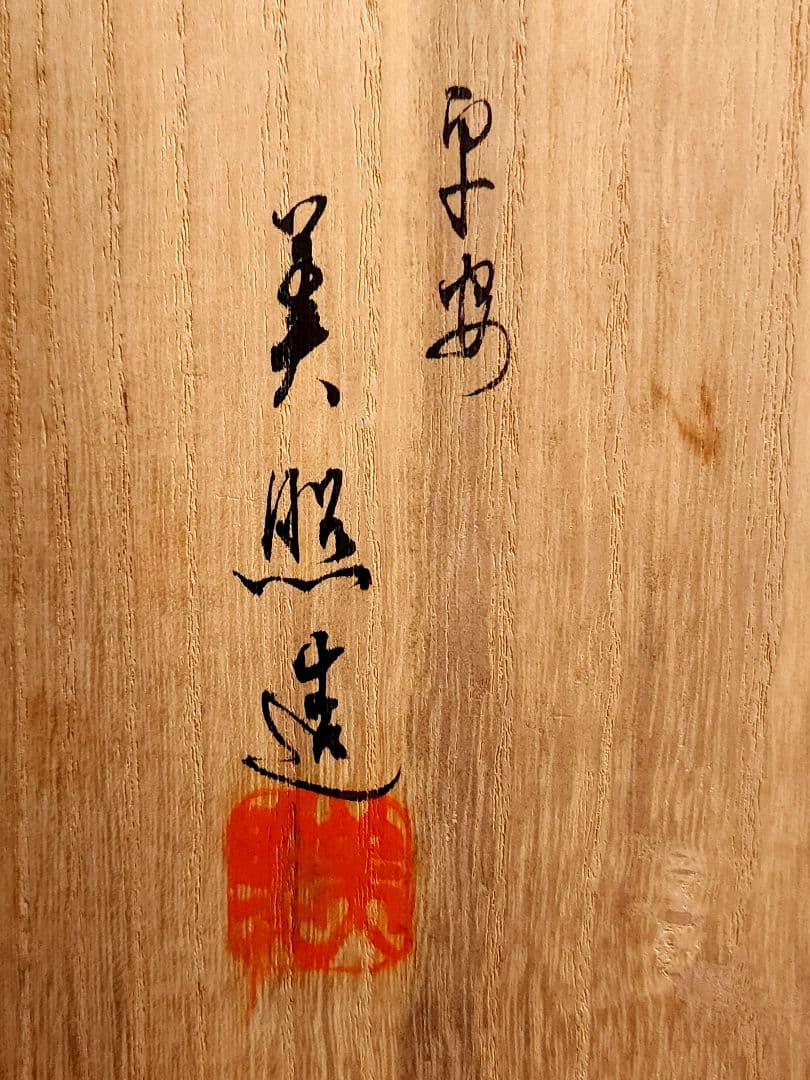 平安
美照造